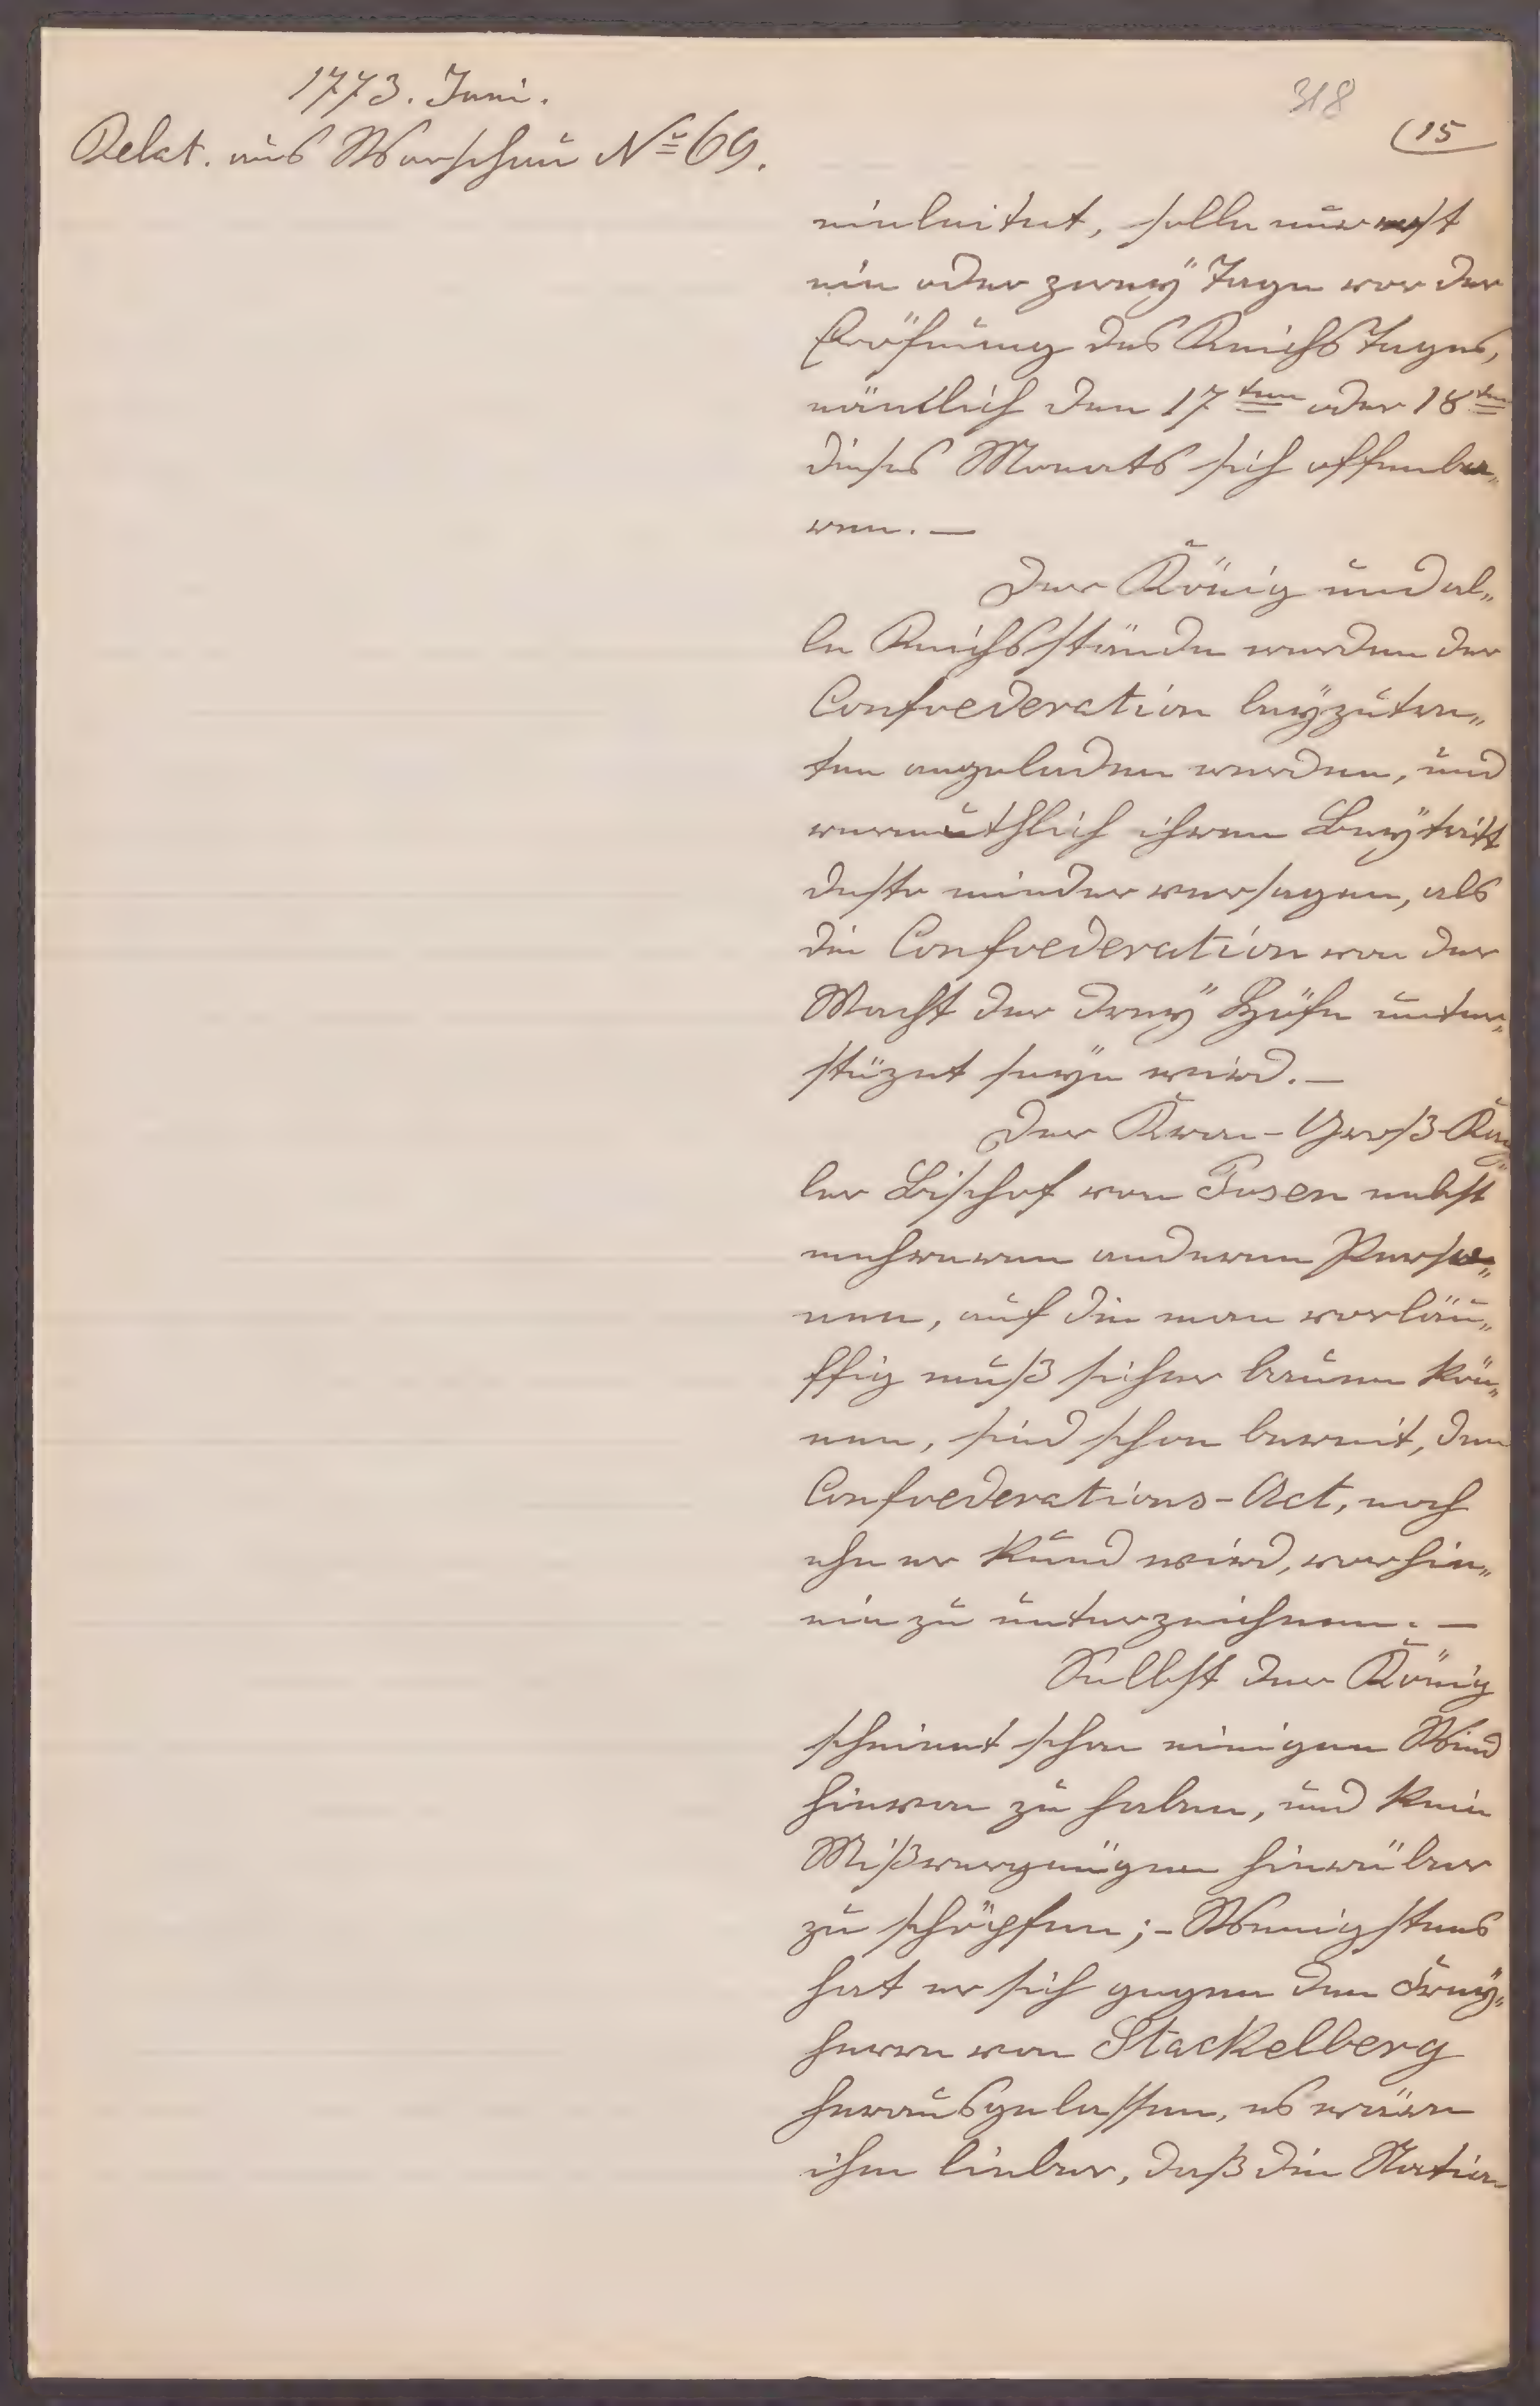 1773. Juni.
Relat. aus Warschau No 69.
318
(15
einleitet, solle nur erst
ein oder zwey Tage vor der
Eröfnung des Reichs Tages,
nämlich den 17ten oder 18ten
dieses Monats sich offenba„
ren. —
Der König und al„
le Reichsstände werden der
Confoederation beyzutre„
ten angeladen werden, und
vermuthlich ihren Beytritt
desto minder versagen, als
die Confoederation von der
Macht der drey Höfe unter„
stüzet seyn wird. —
Der Kron-Groß-Kanz„
ler Bischof von Posen nebst
mehreren anderen Perso„
nen, auf die man vorläu„
ffig muß sicher bauen kön„
nen, sind schon bereit, den
Confoederations-Act, noch
ehe er kund wird, vorhin„
ein zu unterzeichnen. —
Selbst der König
scheinet schon einigen Wind
hievon zu haben, und kein
Mißvergnügen hierüber
zu schöpfen; - Wenigstens
hat er sich gegen den Frey„
herrn von Stackelberg
herausgelassen, es wäre
ihm lieber, daß die Nation